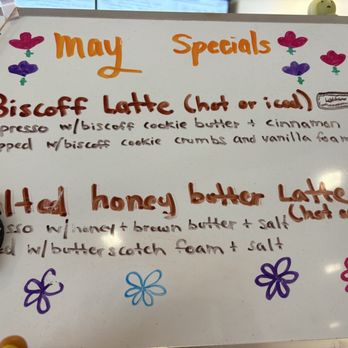 May Specials
Biscoff Latte (hot or iced)
presso w/biscoff cookie butter + cinnamon
pped w/biscoff cookie crumbs and vanilla foam
lted honey butter Latte
(hot o
sso w/honey + brown butter + salt
ed w/butterscotch foam + salt